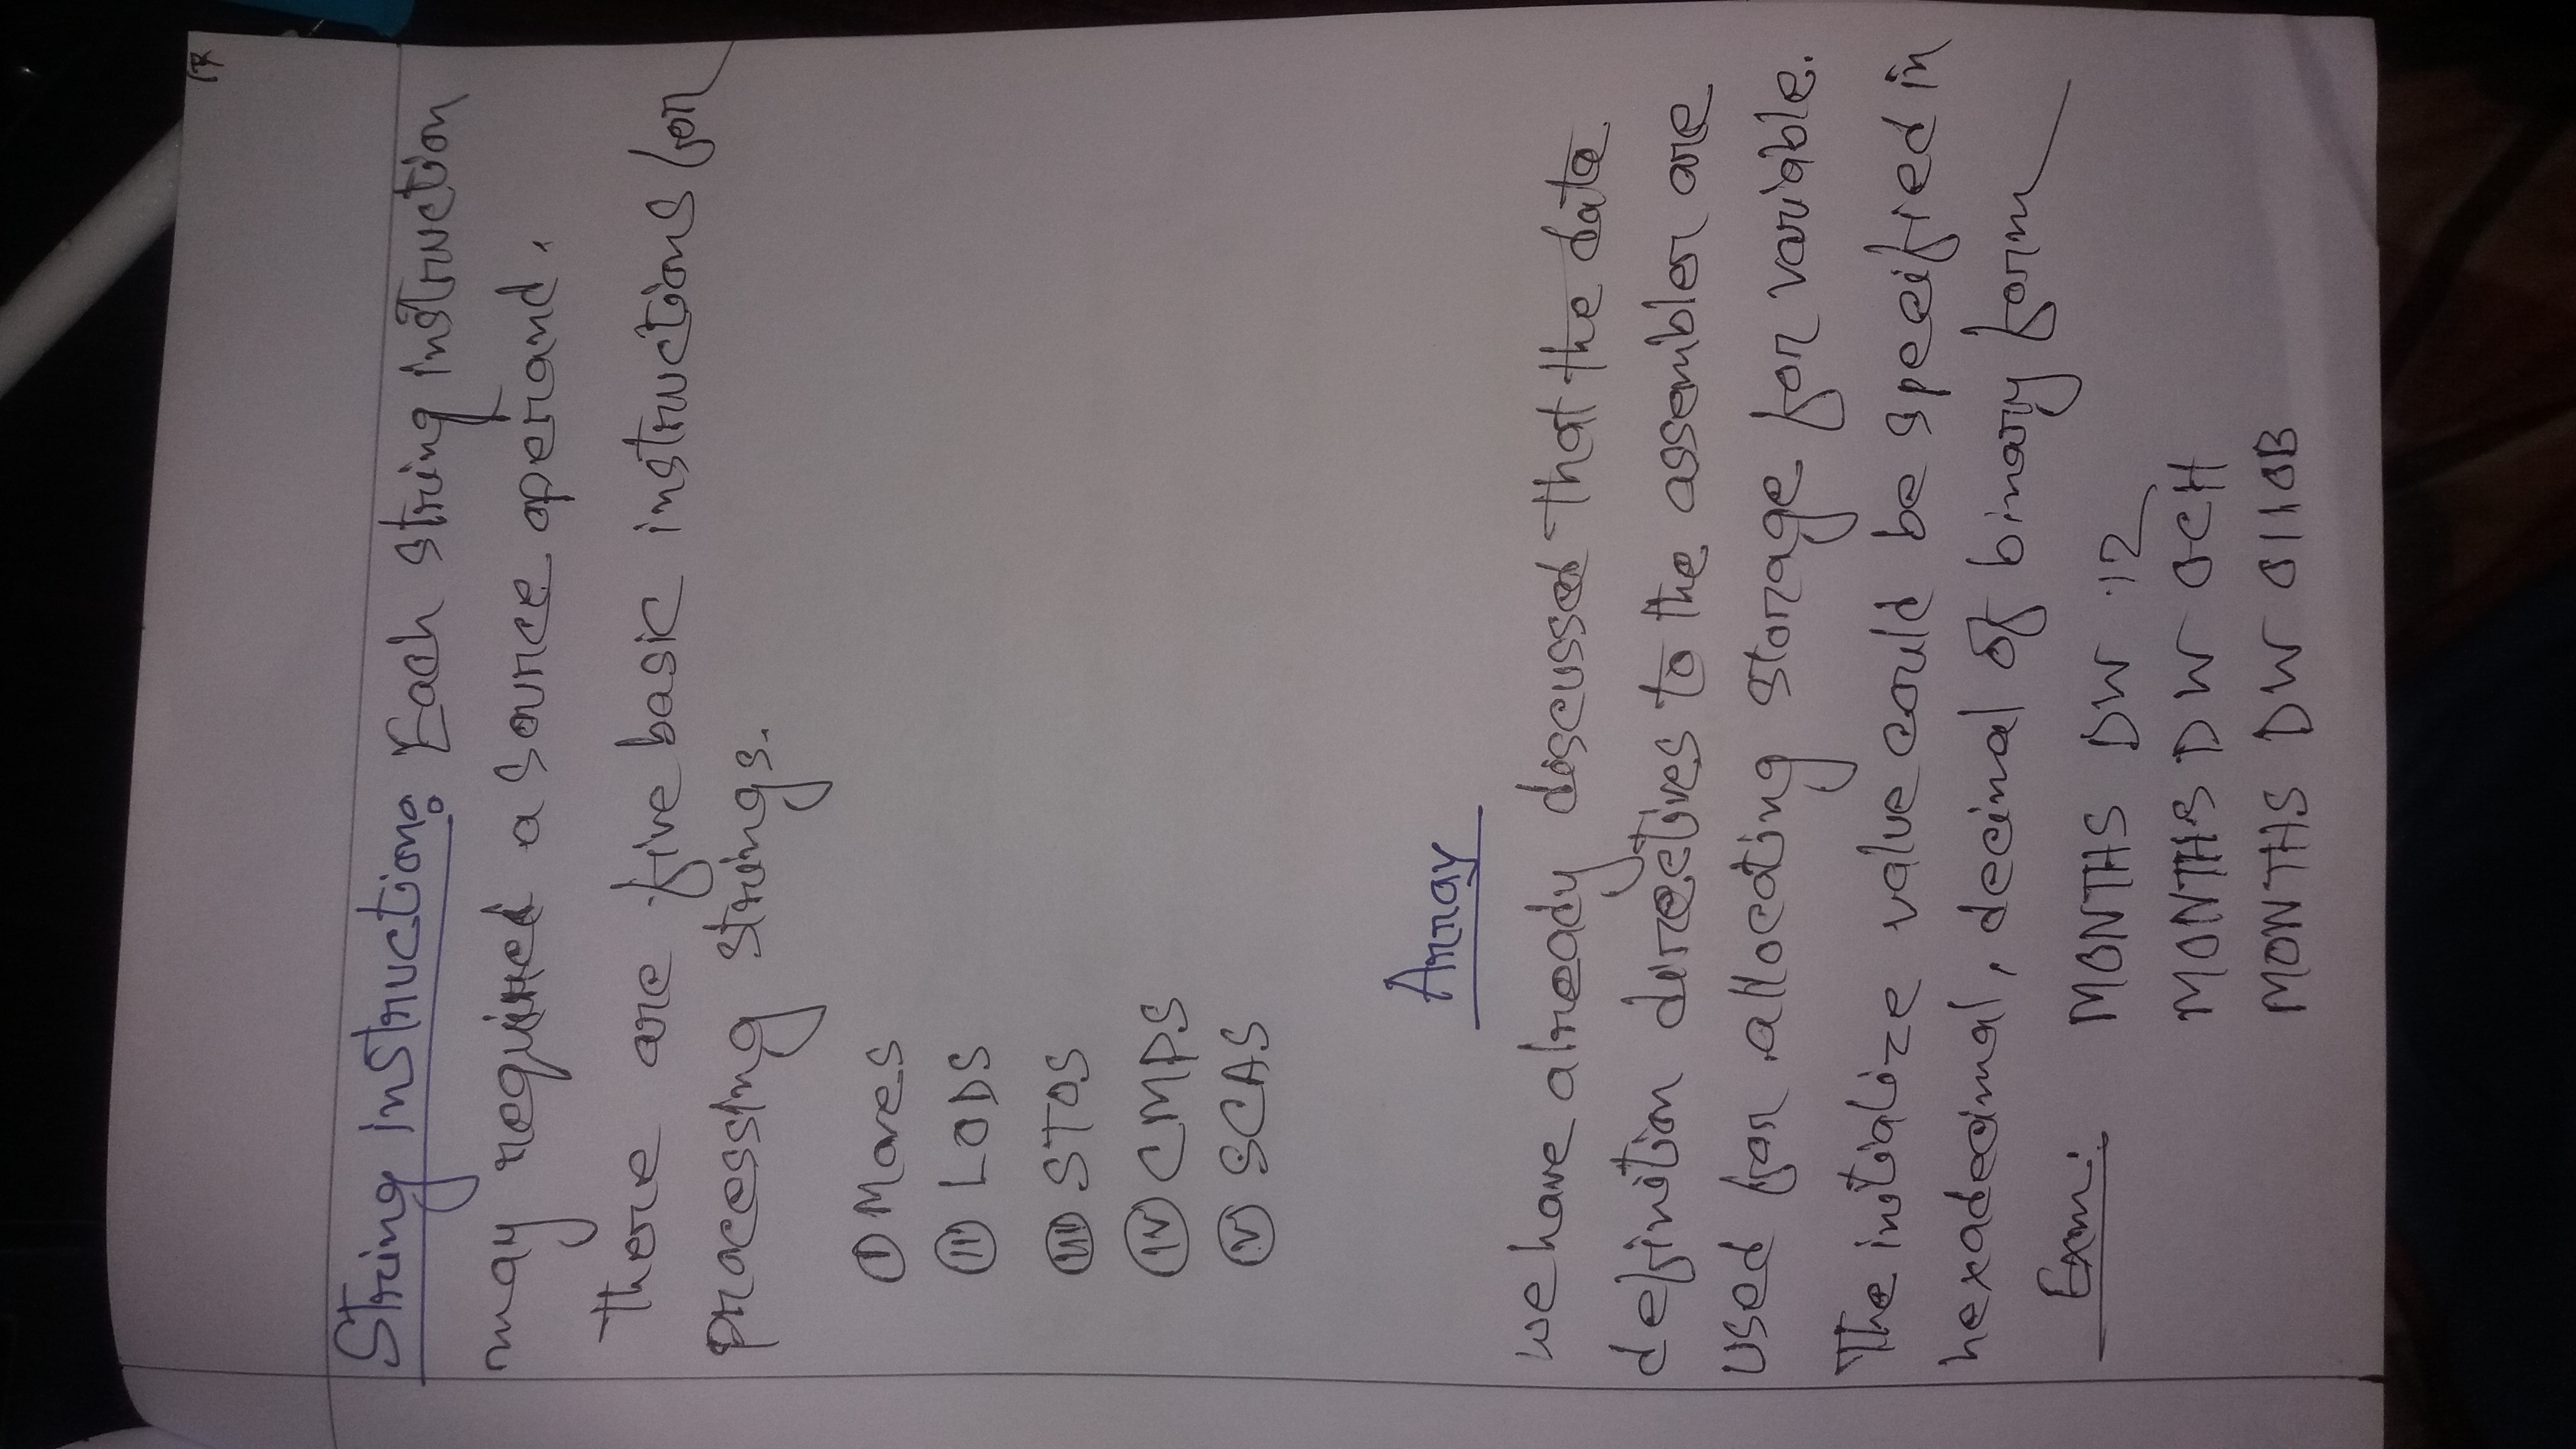 17
String instruction: Each string instruction
may required a source operand.
There are five basic instructions for
processing strings.
(i) Moves
(ii) LODS
(iii) STOS
(iv) CMPS
(v) SCAS
Array
we have already discussed that the data
definition directives to the assembler are
used for allocating storage for variable.
The initialize value could be specified in
hexadecimal, decimal of binary form
Exm: MONTHS DW 12
MONTHS DW 0CH
MONTHS DW 0110B